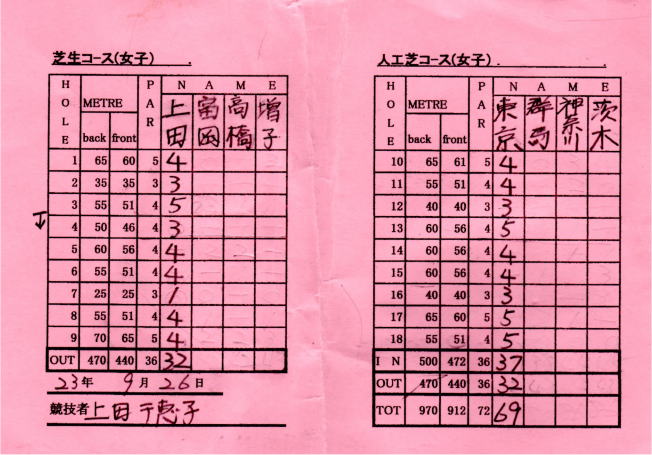 芝生コース(女子)
HOLE METRE PAR N A M E
back front 上田 富岡 高橋 増子
1 65 60 5 4
2 35 35 3 3
3 55 51 4 5
4 50 46 4 3
5 60 56 4 4
6 55 51 4 4
7 25 25 3 1
8 55 51 4 4
9 70 65 5 4
OUT 470 440 36 32
23年 9月 26日
競技者 上田千恵子
人工芝コース(女子)
HOLE METRE PAR N A M E
back front 東京 群馬 神奈川 茨木
10 65 61 5 4
11 55 51 4 4
12 40 40 3 3
13 60 56 4 5
14 60 56 4 4
15 60 56 4 4
16 40 40 3 3
17 65 60 5 5
18 55 51 4 5
I N 500 472 36 37
OUT 470 440 36 32
TOT 970 912 72 69